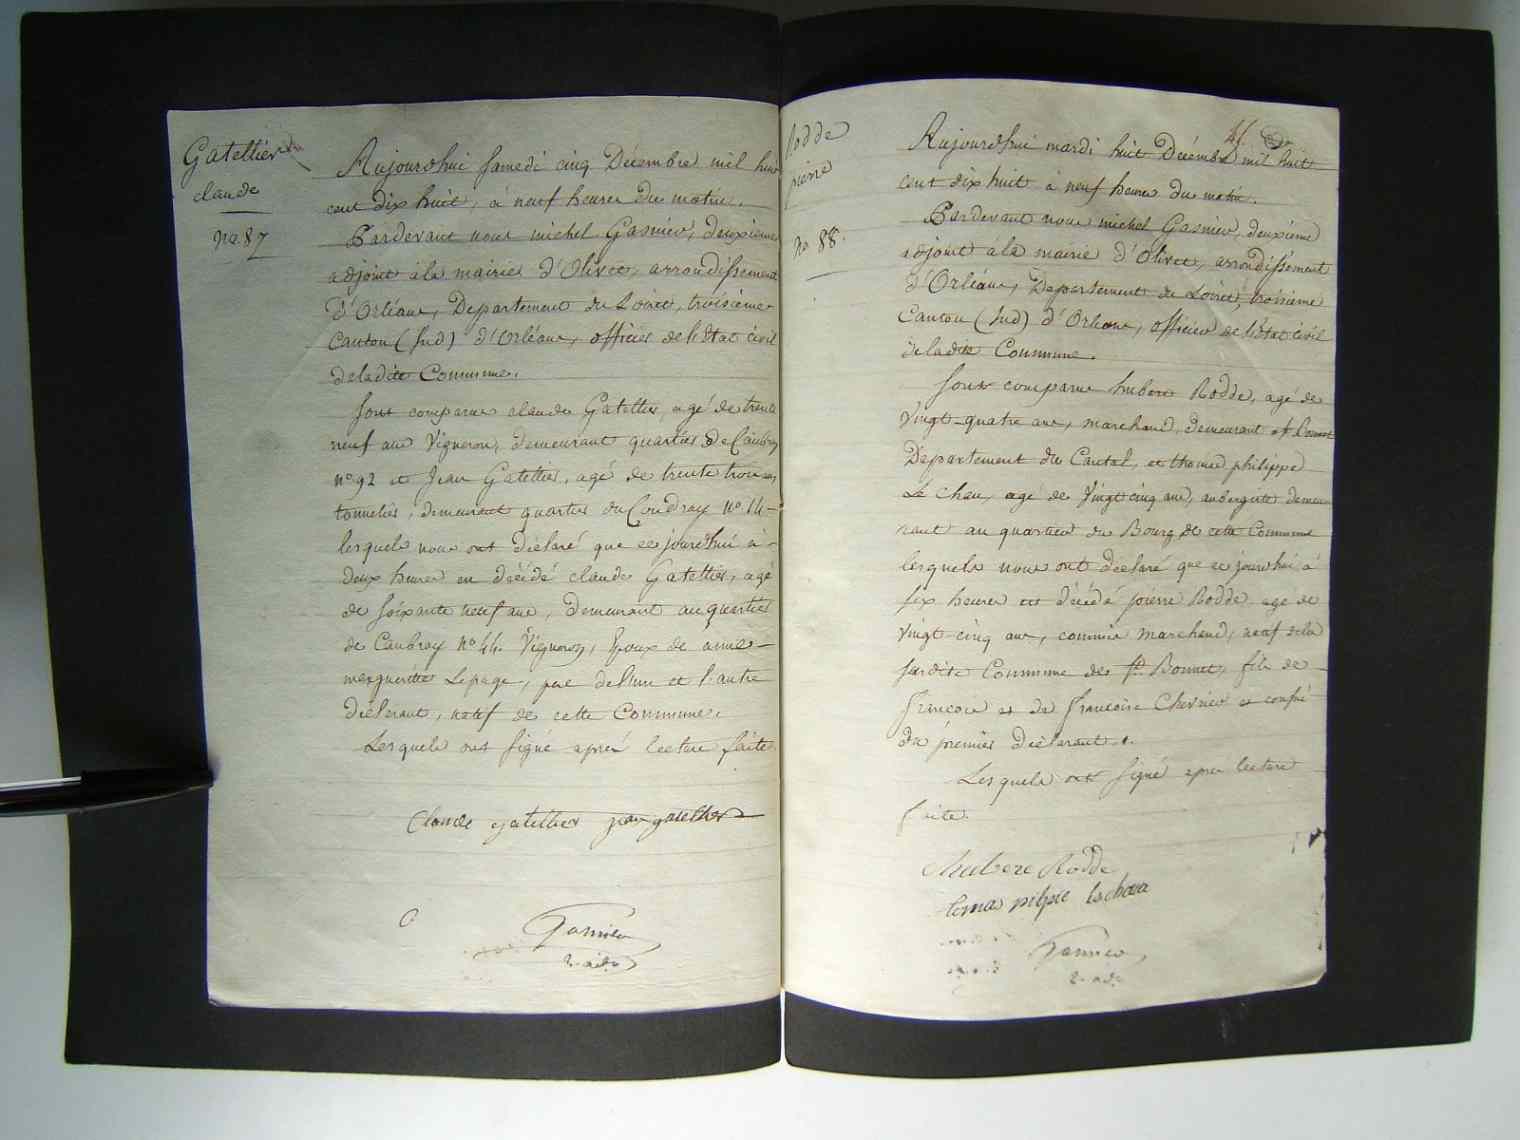 Gatellier
claude
No. 87
Aujourdhui Samedi cinq Décembre mil huit
cent dix huit, à neuf heures du matin.
Pardevant nous michel Gasnier, deuxième
adjoint à la mairie d'Olivet, arrondissement
d'Orléans, Departement du Loiret, troisième
Canton (Sud) d'Orléans, officier de l'Etat civil
de ladite Commune.
Sont comparus claude Gatellier, agé de trente
neuf ans Vigneron, demeurant quartier de Caubray
n° 92 et Jean Gatellier, agé de trente trois ans
tonnelier, demeurant quartier du Coudray n° 44
lesquels nous ont déclaré que ce jourd'hui à
deux heures est décédé claude Gatellier, agé
de soixante neuf ans, demeurant au quartier
de Caubray n° 44. Vigneron, Epoux de anne
mergueritte Lepage, père de l'un et l'autre
déclarant, natif de cette Commune.
Lesquels ont signé après lecture faite.
Claude gatellier jean gatellier
Gasnier
2. adj.
Rodde
pierre
No. 88.
45.
Aujourdhui mardi huit Décembre mil huit
cent dix huit à neuf heures du matin.
Pardevant nous michel Gasnier, deuxième
adjoint à la mairie d'Olivet, arrondissement
d'Orléans, Departement du Loiret, troisième
Canton (Sud) d'Orleans, officier de l'état civil
de ladite Commune.
Sont comparus hubert Rodde, agé de
Vingt-quatre ans, marchand, demeurant a St. Bonnet
Departement du Cantal, et thomas philippe
Le chau, agé de Vingt cinq ans, aubergiste demeu
rant au quartier du Bourg de cette Commune
lesquels nous ont déclaré que ce jourd'hui à
six heures est décédé pierre Rodde agé de
vingt-cinq ans, commis marchand, natif de la
susdite Commune de St. Bonnet, fils de
francois et de francoise Chevrier et
du premier déclarant.
Lesquels ont signé apres lecture
faite.
hubere Rodde
tomas pilpie lechaua
Gasnier
2. adj.